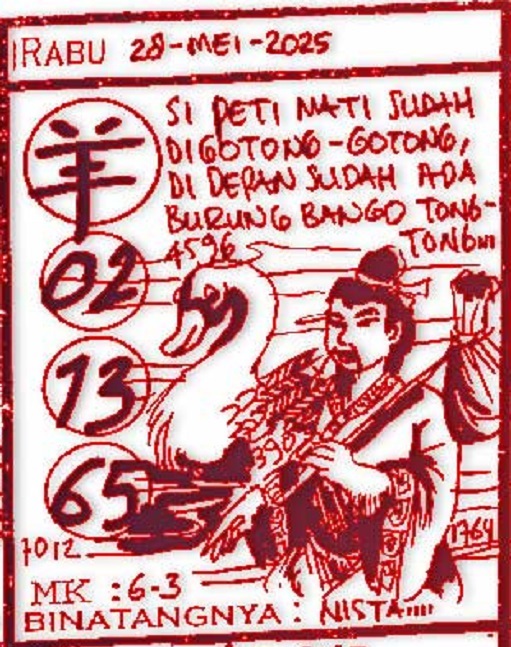 RABU 28-MEI-2025
羊
SI PETI MATI SUDAH
DIGOTONG-GOTONG,
DI DEPAN SUDAH ADA
BURUNG BANGO TONG-
TONG....
4596
02
13
65
7012
1764
MK : 6-3
BINATANGNYA : NISTA....